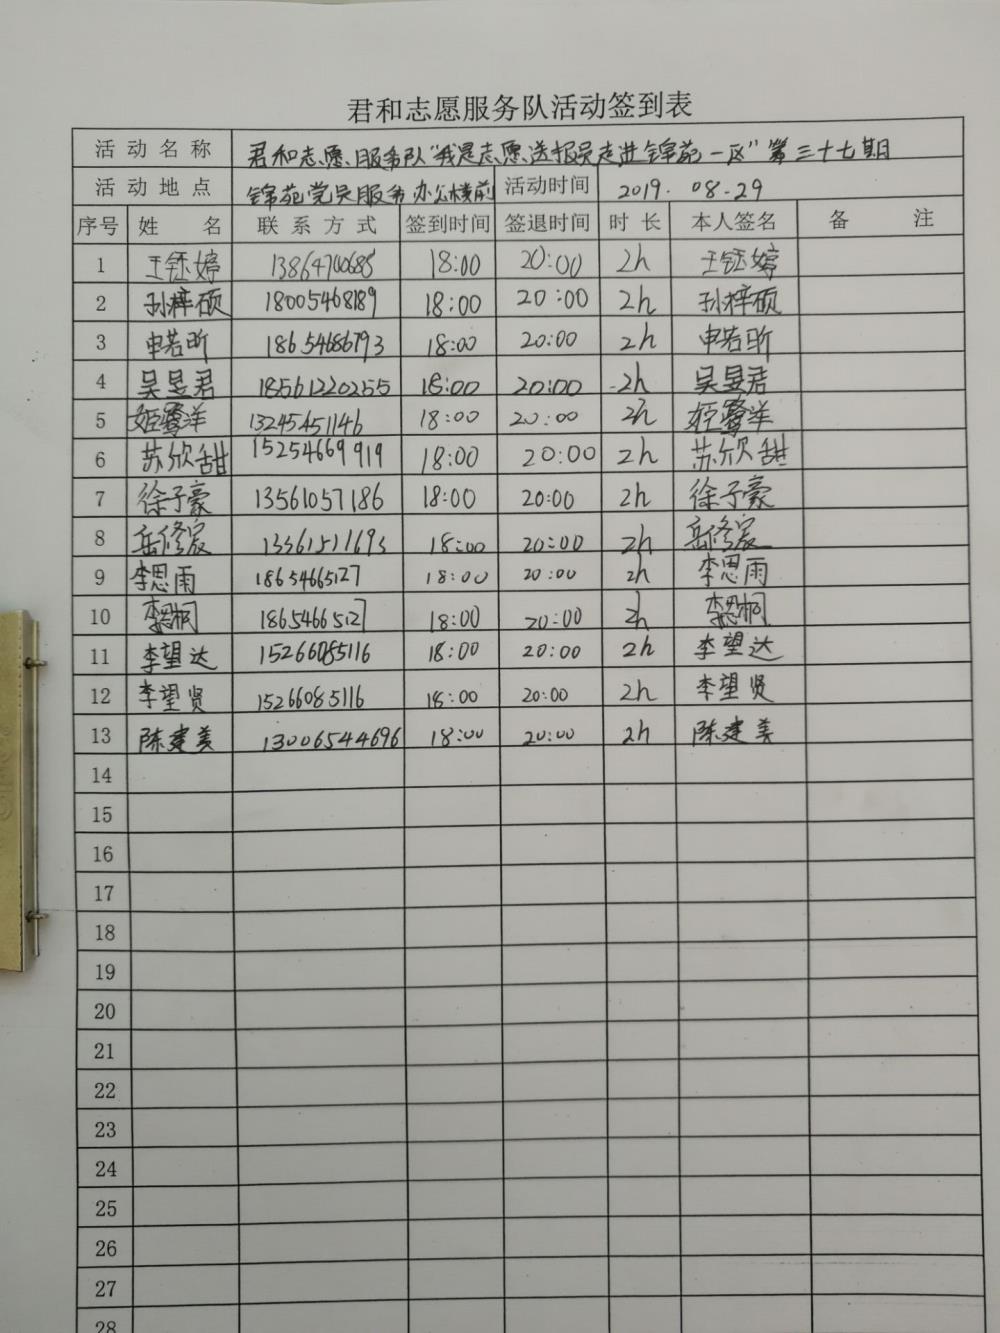 君和志愿服务队活动签到表
活动名称 君和志愿服务队“我是志愿送报员走进锦苑一区”第三十七期
活动地点 锦苑党员服务办公楼前 活动时间 2019.08.29
序号 姓名 联系方式 签到时间 签退时间 时长 本人签名 备注
1 王钰婷 13864700688 18:00 20:00 2h 王钰婷
2 孙梓硕 18005468189 18:00 20:00 2h 孙梓硕
3 申若昕 18654686793 18:00 20:00 2h 申若昕
4 吴昱君 18561220255 18:00 20:00 2h 吴昱君
5 姬鹭洋 13245451146 18:00 20:00 2h 姬鹭洋
6 苏欣甜 15254669919 18:00 20:00 2h 苏欣甜
7 徐子豪 13561057186 18:00 20:00 2h 徐子豪
8 岳修宸 13361511693 18:00 20:00 2h 岳修宸
9 李思雨 18654665127 18:00 20:00 2h 李思雨
10 李思桐 18654665127 18:00 20:00 2h 李思桐
11 李望达 15266085116 18:00 20:00 2h 李望达
12 李望贤 15266085116 18:00 20:00 2h 李望贤
13 陈建美 13006544696 18:00 20:00 2h 陈建美
14
15
16
17
18
19
20
21
22
23
24
25
26
27
28